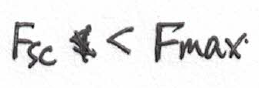 Fsc < Fmax.